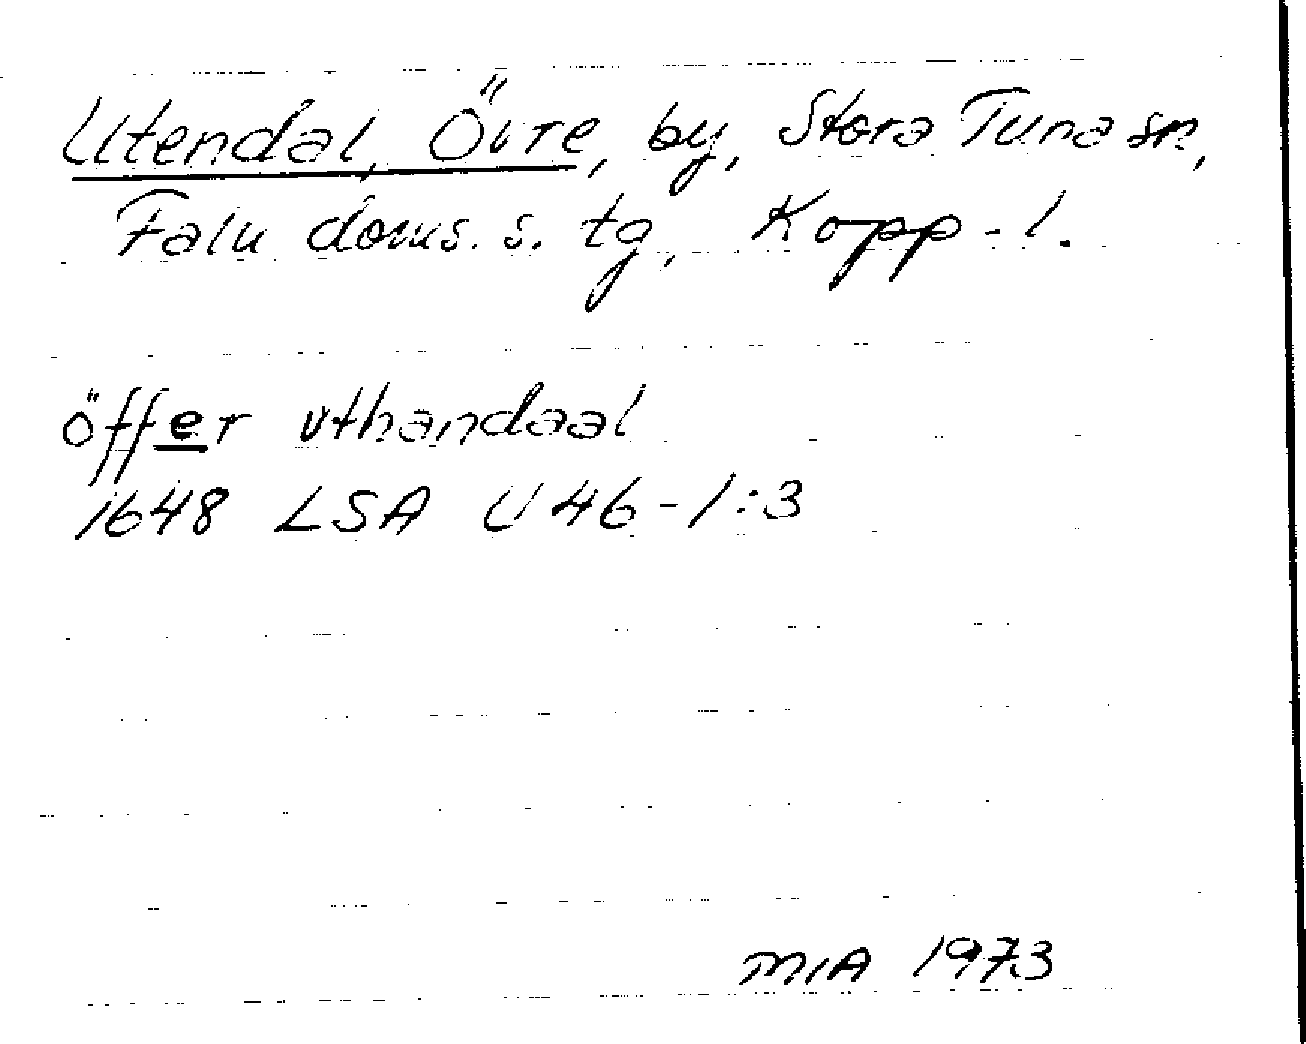 Utendal, Övre, by, Stora Tuna sn,
Falu doms. s. tg, Kopp-l.
öffer vthandaal
1648 LSA U 46-1:3
MIA 1973